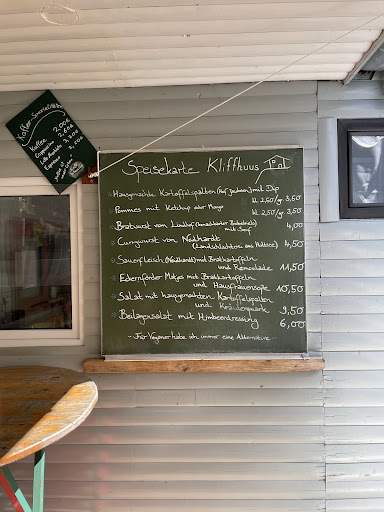 Kaffee-Spezialitäten
Kaffee 2,00€
Cappuccino 2,60€
Latte Macchiato 3,20€
Espresso 2,00€
Speisekarte Kliffhuus
Hausgemachte Kartoffelspalten mit Dip kl. 2,50/gr. 3,50
Pommes mit Ketchup oder Mayo kl. 2,50/gr. 3,50
Bratwurst vom Lindhof 4,00
mit Senf
Currywurst von Neidhardt 4,50
(Landschlachterei aus Holtsee)
Sauerfleisch (Neidhardt) mit Bratkartoffeln
und Remoulade 11,50
Eckernförder Matjes mit Bratkartoffeln
und Hausfrauensoße 10,50
Salat mit hausgemachten Kartoffelspalten
und Kräuterquark 9,50
Beilagensalat mit Himbeerdressing 6,00
- Für Veganer habe ich immer eine Alternative -